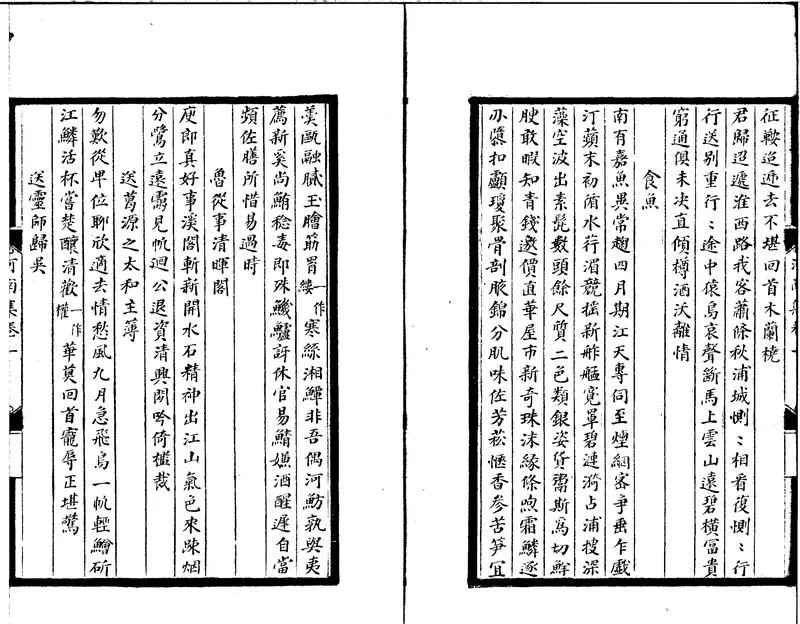 征鞍迢遞去不堪回首木蘭橈
君歸迢遞淮西路我客蕭條秋浦城惻〻相看復惻〻行
行送别重行〻途中猿鳥哀聲斷馬上雲山遠碧橫冨貴
窮通俱未决直傾樽酒沃離情
食魚
南有嘉魚異常趨四月期江天專伺至煙網密争垂乍戲
汀蘋末初隨水荇湄競摇新舴艋寛罩碧漣漪占浦搜深
藻空波出素髭數頭餘尺質二色類銀姿貨鬻斯爲切鮮
腴敢暇知青錢邀價直華屋市新奇珠沫緣條喣霜鱗逐
扣顱瓊聚骨剖腋錦分肌味佐芳菘愜香参苦笋冝
羮甌融膩玉膾筯罥一作縷寒絲湘鱓非吾偶河魴孰與夷
薦新奚尚鮪稔毒即殊鱸訝休官易鯖嫌酒醒遲自當
頻佐膳所惜易過時
魯從事清暉閣
庾郎真好事溪閣斬新開水石精神出江山氣色來踈烟
分鷺立遠靄見帆迴公退資清興閑吟倚檻裁
送葛源之太和主簿
勿歎從卑位聊欣適去情愁風九月急飛鳥一帆輕鱠斫
江鱗活杯嘗楚釀清歡一作權華莫回首寵辱正堪驚
送靈師歸吴
河南集卷一